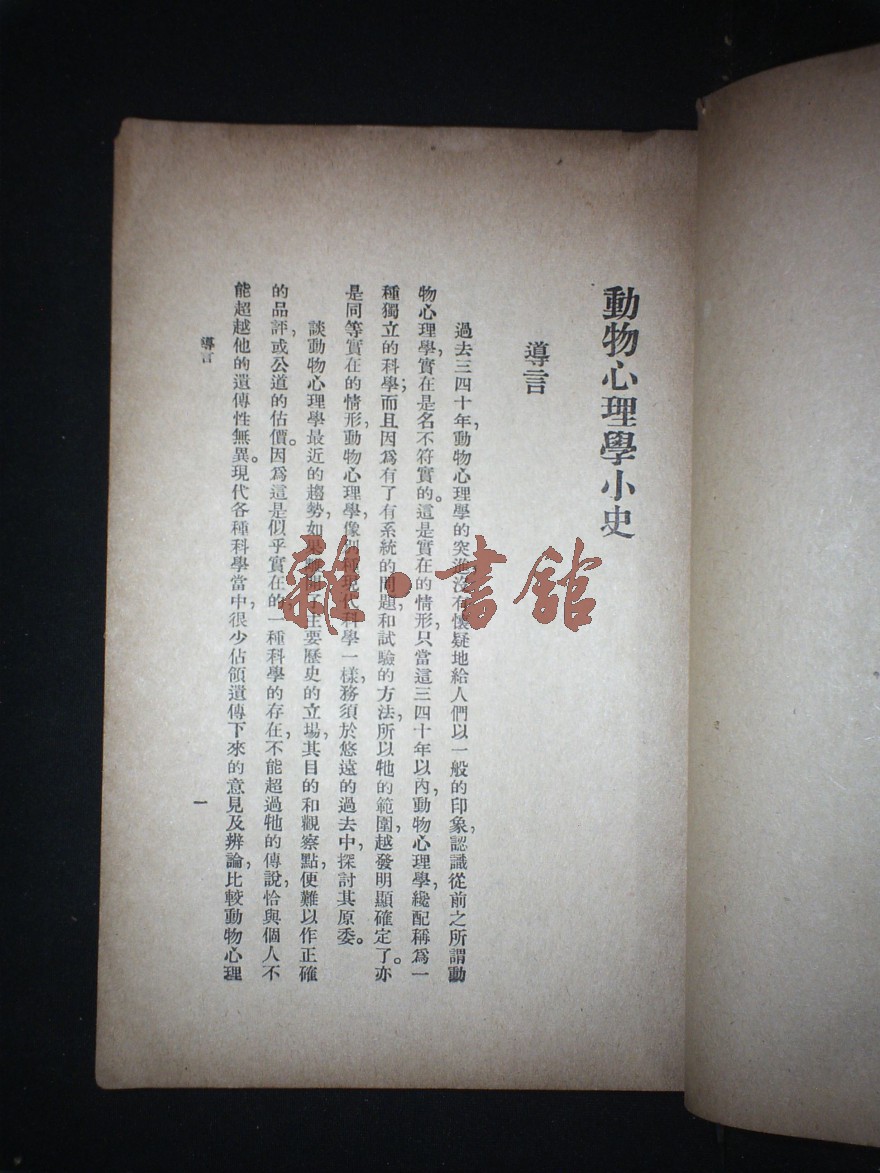 動物心理學小史
導言
過去三四十年,動物心理學的突進,沒有懷疑地給人們以一般的印象,認識從前之所謂動
物心理學,實在是名不符實的。這是實在的情形,只當這三四十年以內,動物心理學,纔配稱爲一
種獨立的科學;而且因爲有了有系統的問題和試驗的方法,所以牠的範圍,越發明顯確定了。亦
是同等實在的情形,動物心理學,像別種現代科學一樣,務須於悠遠的過去中,探討其原委。
談動物心理學最近的趨勢,如果離開了主要歷史的立場,其目的和觀察點,便難以作正確
的品評,或公道的估價。因爲這是似乎實在的,一種科學的存在,不能超過牠的傳說,恰與個人不
能超越他的遺傳性無異。現代各種科學當中,很少佔領遺傳下來的意見及辨論,比較動物心理
導言
一
雜·書館